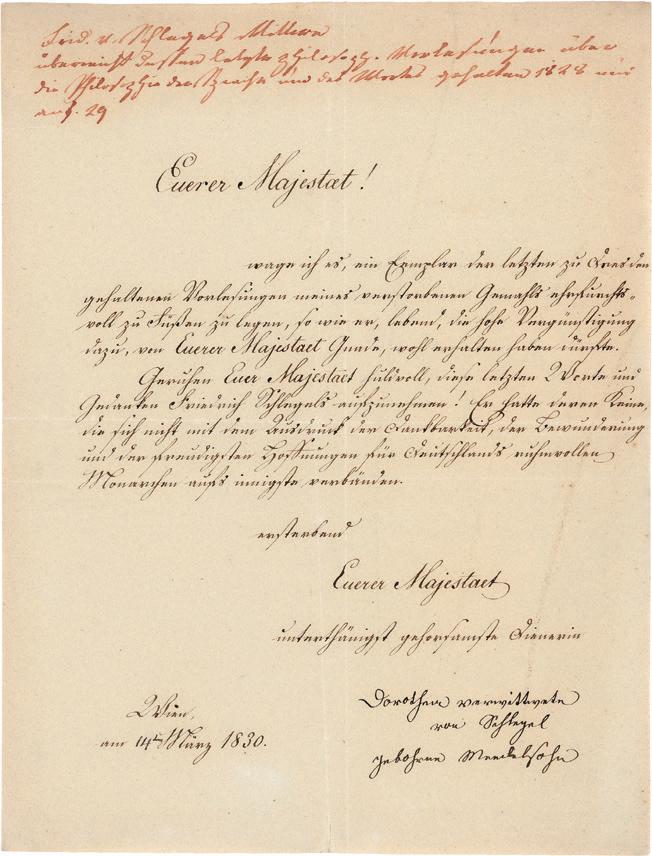 Frid. v. Schlegels Wittwe
überreicht dessen letzte philosoph. Vorlesungen über
die Philosophie der Sprache und des Wortes gehalten 1828 und
anf. 29
Euerer Majestæt!
wage ich es, ein Exemplar der letzten zu Dresden
gehaltenen Vorlesungen meines verstorbenen Gemahls ehrfurchts-
voll zu Füßen zu legen, so wie er, lebend, die hohe Vergünstigung
dazu, von Euerer Majestaet Gnade, wohl erhalten haben dürfte.
Geruhen Euer Majestaet huldvoll, diese letzten Worte und
Gedanken Friedrich Schlegels aufzunehmen! Er hatte deren Keine,
die sich nicht mit dem Ausdruck der Dankbarkeit, der Bewunderung
und der freudigsten Hoffnungen für Deutschlands ruhmvollen
Monarchen aufs innigste verbänden.
ersterbend
Euerer Majestaet
unterthänigst gehorsamste Dienerin
Dorothea verwittwete
von Schlegel
gebohrne Mendelsohn
Wien,
am 14ten März 1830.